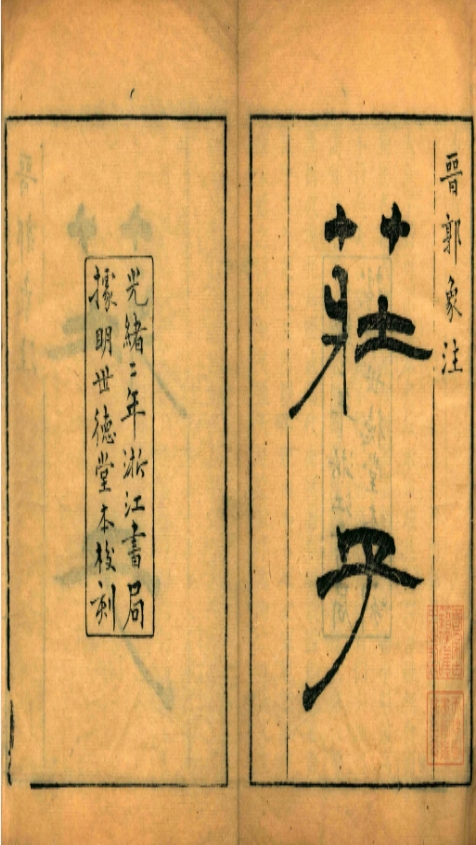 晋郭象注
莊子
光緒二年浙江書局
據明世德堂本校刻